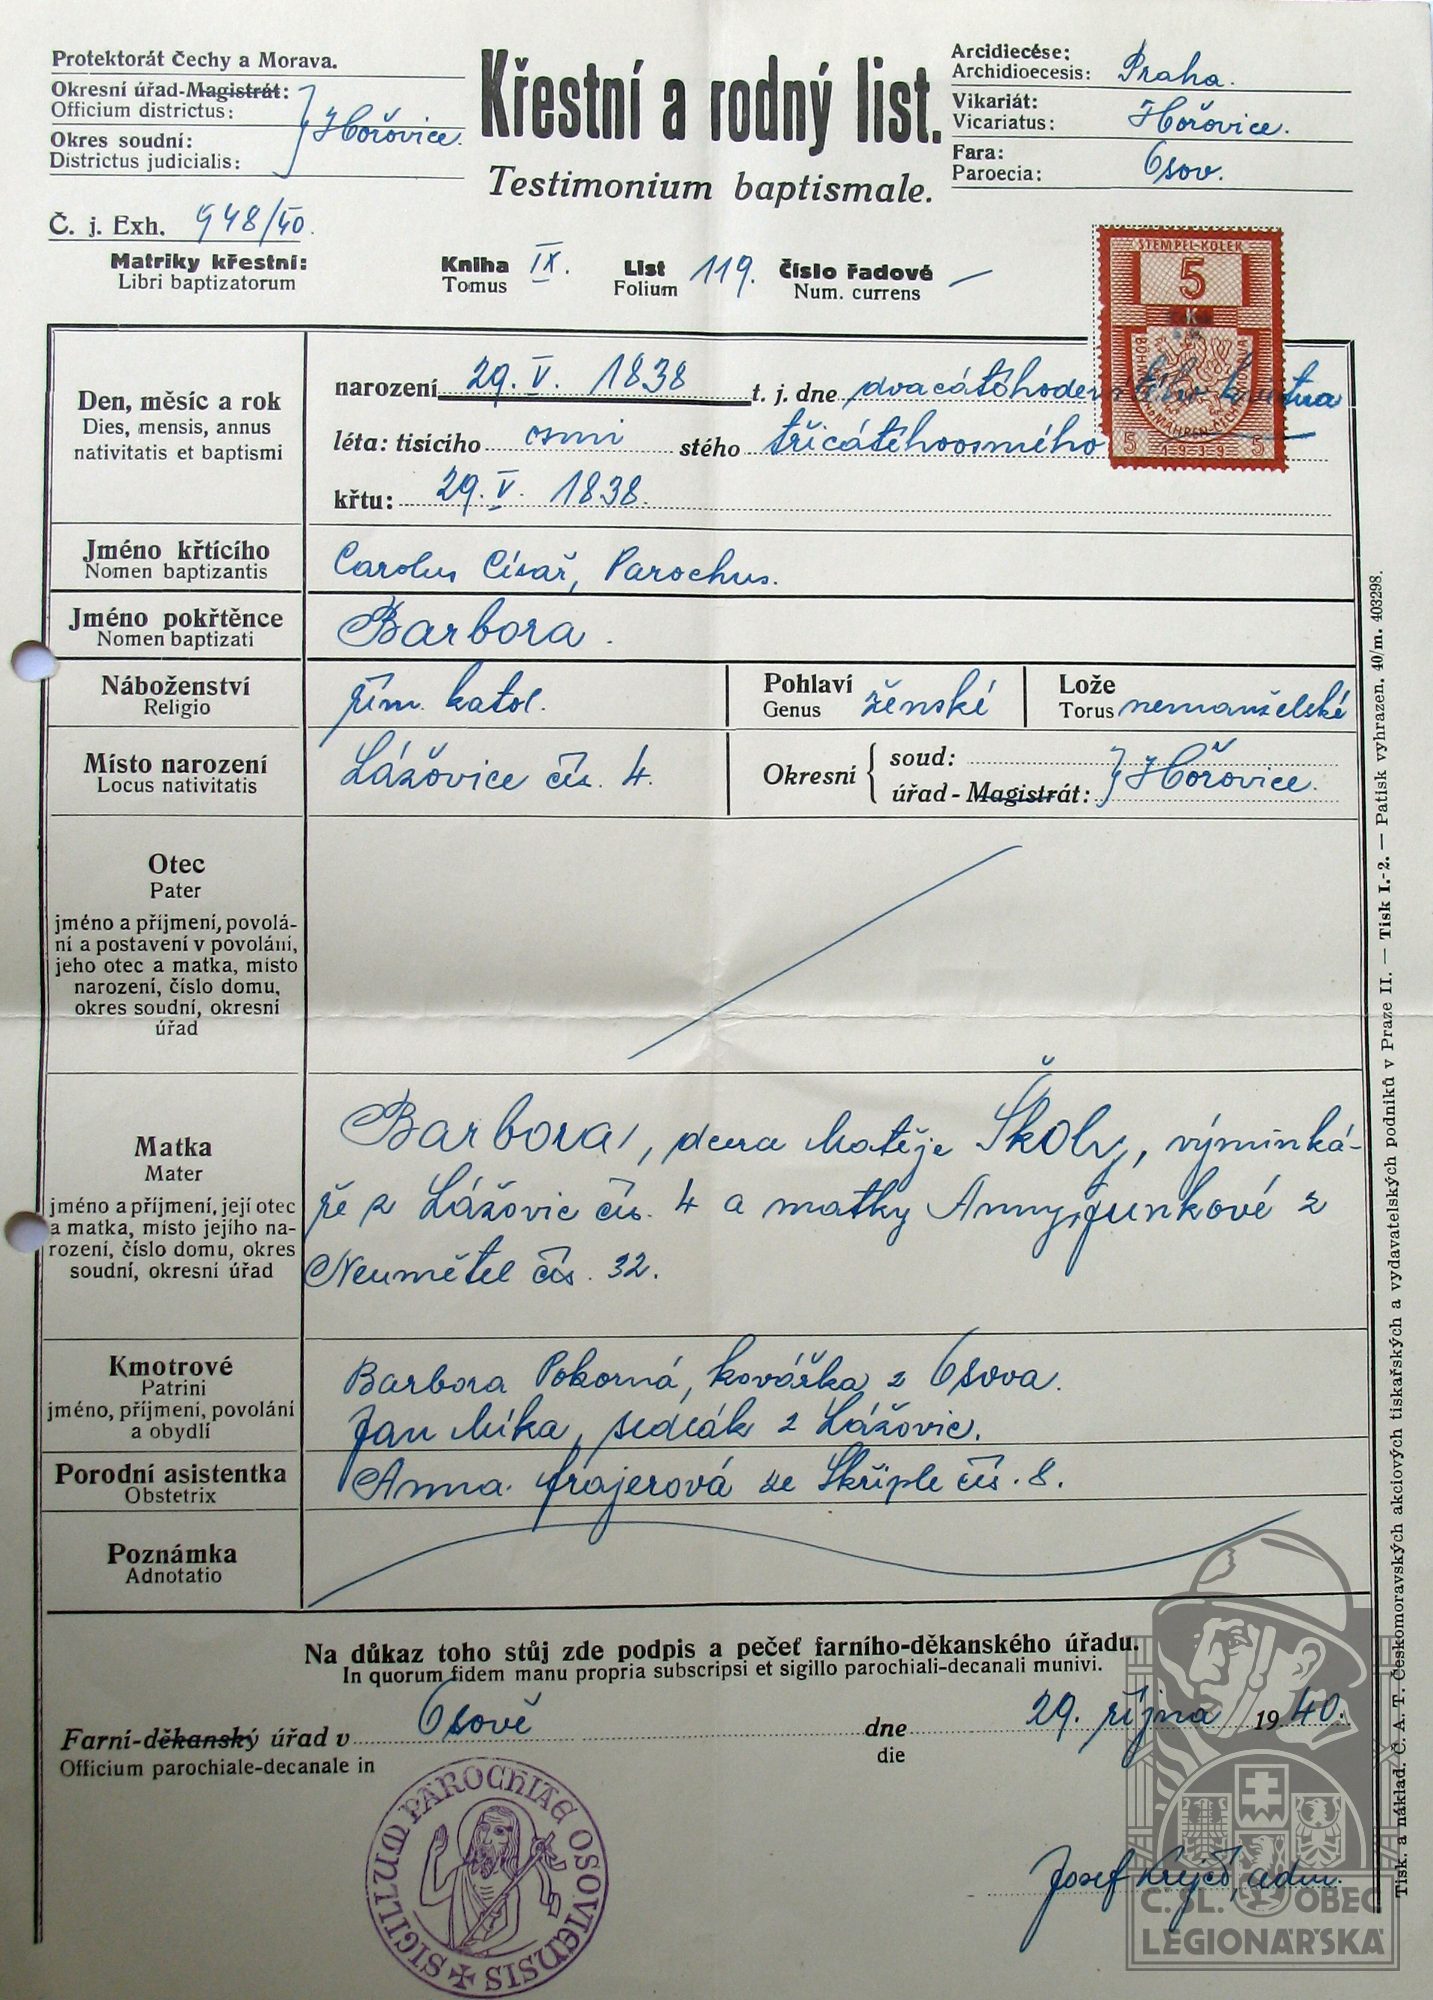 Protektorát Čechy a Morava.
Okresní úřad-Magistrát:
Officium districtus:
Okres soudní:
Districtus judicialis:
Hořovice.
Křestní a rodný list.
Testimonium baptismale.
Arcidiecése:
Archidioecesis: Praha.
Vikariát:
Vicariatus: Hořovice.
Fara:
Paroecia: Osov.
Č. j. Exh. 948/40.
Matriky křestní:
Libri baptizatorum
Kniha IX.
Tomus
List 119.
Folium
Číslo řadové —
Num. currens
STEMPEL-KOLEK
5
5 1939 5
Den, měsíc a rok
Dies, mensis, annus
nativitatis et baptismi
narození 29. V. 1838 t. j. dne dvacátéhodevátého května
léta: tisícího osmi stého třicátéhoosmého
křtu: 29. V. 1838.
Jméno křtícího
Nomen baptizantis
Carolus Císař, Parochus.
Jméno pokřtěnce
Nomen baptizati
Barbora.
Náboženství
Religio
řím. katol.
Pohlaví
Genus ženské
Lože
Torus nemanželské
Místo narození
Locus nativitatis
Lážovice čís. 4.
Okresní
soud:
úřad - Magistrát:
Hořovice.
Otec
Pater
jméno a příjmení, povolá-
ní a postavení v povolání,
jeho otec a matka, místo
narození, číslo domu,
okres soudní, okresní
úřad
Matka
Mater
jméno a příjmení, její otec
a matka, místo jejího na-
rození, číslo domu, okres
soudní, okresní úřad
Barbora, dcera Matěje Školy, výminká-
ře z Lážovic čís. 4 a matky Anny Junkové z
Neumětel čís. 32.
Kmotrové
Patrini
jméno, příjmení, povolání
a obydlí
Barbora Pokorná, kovářka z Osova.
Jan Míka, sedlák z Lážovic.
Porodní asistentka
Obstetrix
Anna Frajerová ze Skřiple čís. 8.
Poznámka
Adnotatio
Na důkaz toho stůj zde podpis a pečeť farního-děkanského úřadu.
In quorum fidem manu propria subscripsi et sigillo parochiali-decanali munivi.
Farní-děkanský úřad v Osově dne 29. října 1940.
Officium parochiale-decanale in die
SIGILLUM PAROCHIAE OSOVIENSIS
Josef Krejčí, adm.
Č. SL. OBEC
LEGIONÁŘSKÁ
Tisk. a náklad. Č. A. T. Českomoravských akciových tiskařských a vydavatelských podniků v Praze II. — Tisk I.-2. — Patisk vyhrazen. 40/m. 403298.